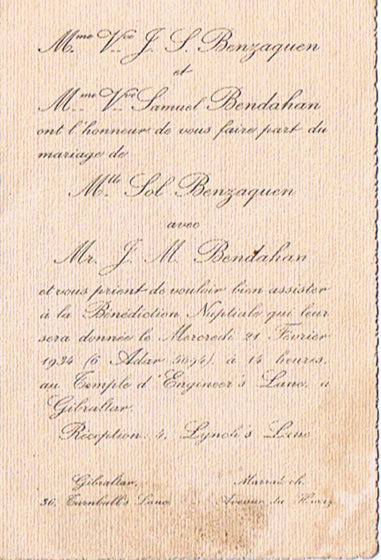 Mme Vve J. S. Benzaquen
et
Mme Vve Samuel Bendahan
ont l'honneur de vous faire part du
mariage de
Mlle Sol Benzaquen
avec
Mr. J. M. Bendahan
et vous prient de vouloir bien assister
à la Bénédiction Nuptiale qui leur
sera donnée le Mercredi 21 Février
1934 (6 Adar 5694), à 14 heures,
au Temple d'Engineer's Lane, à
Gibraltar.
Réception: 4, Lynch's Lane
Gibraltar,
36, Turnbull's Lane
Marrakech
Avenue du